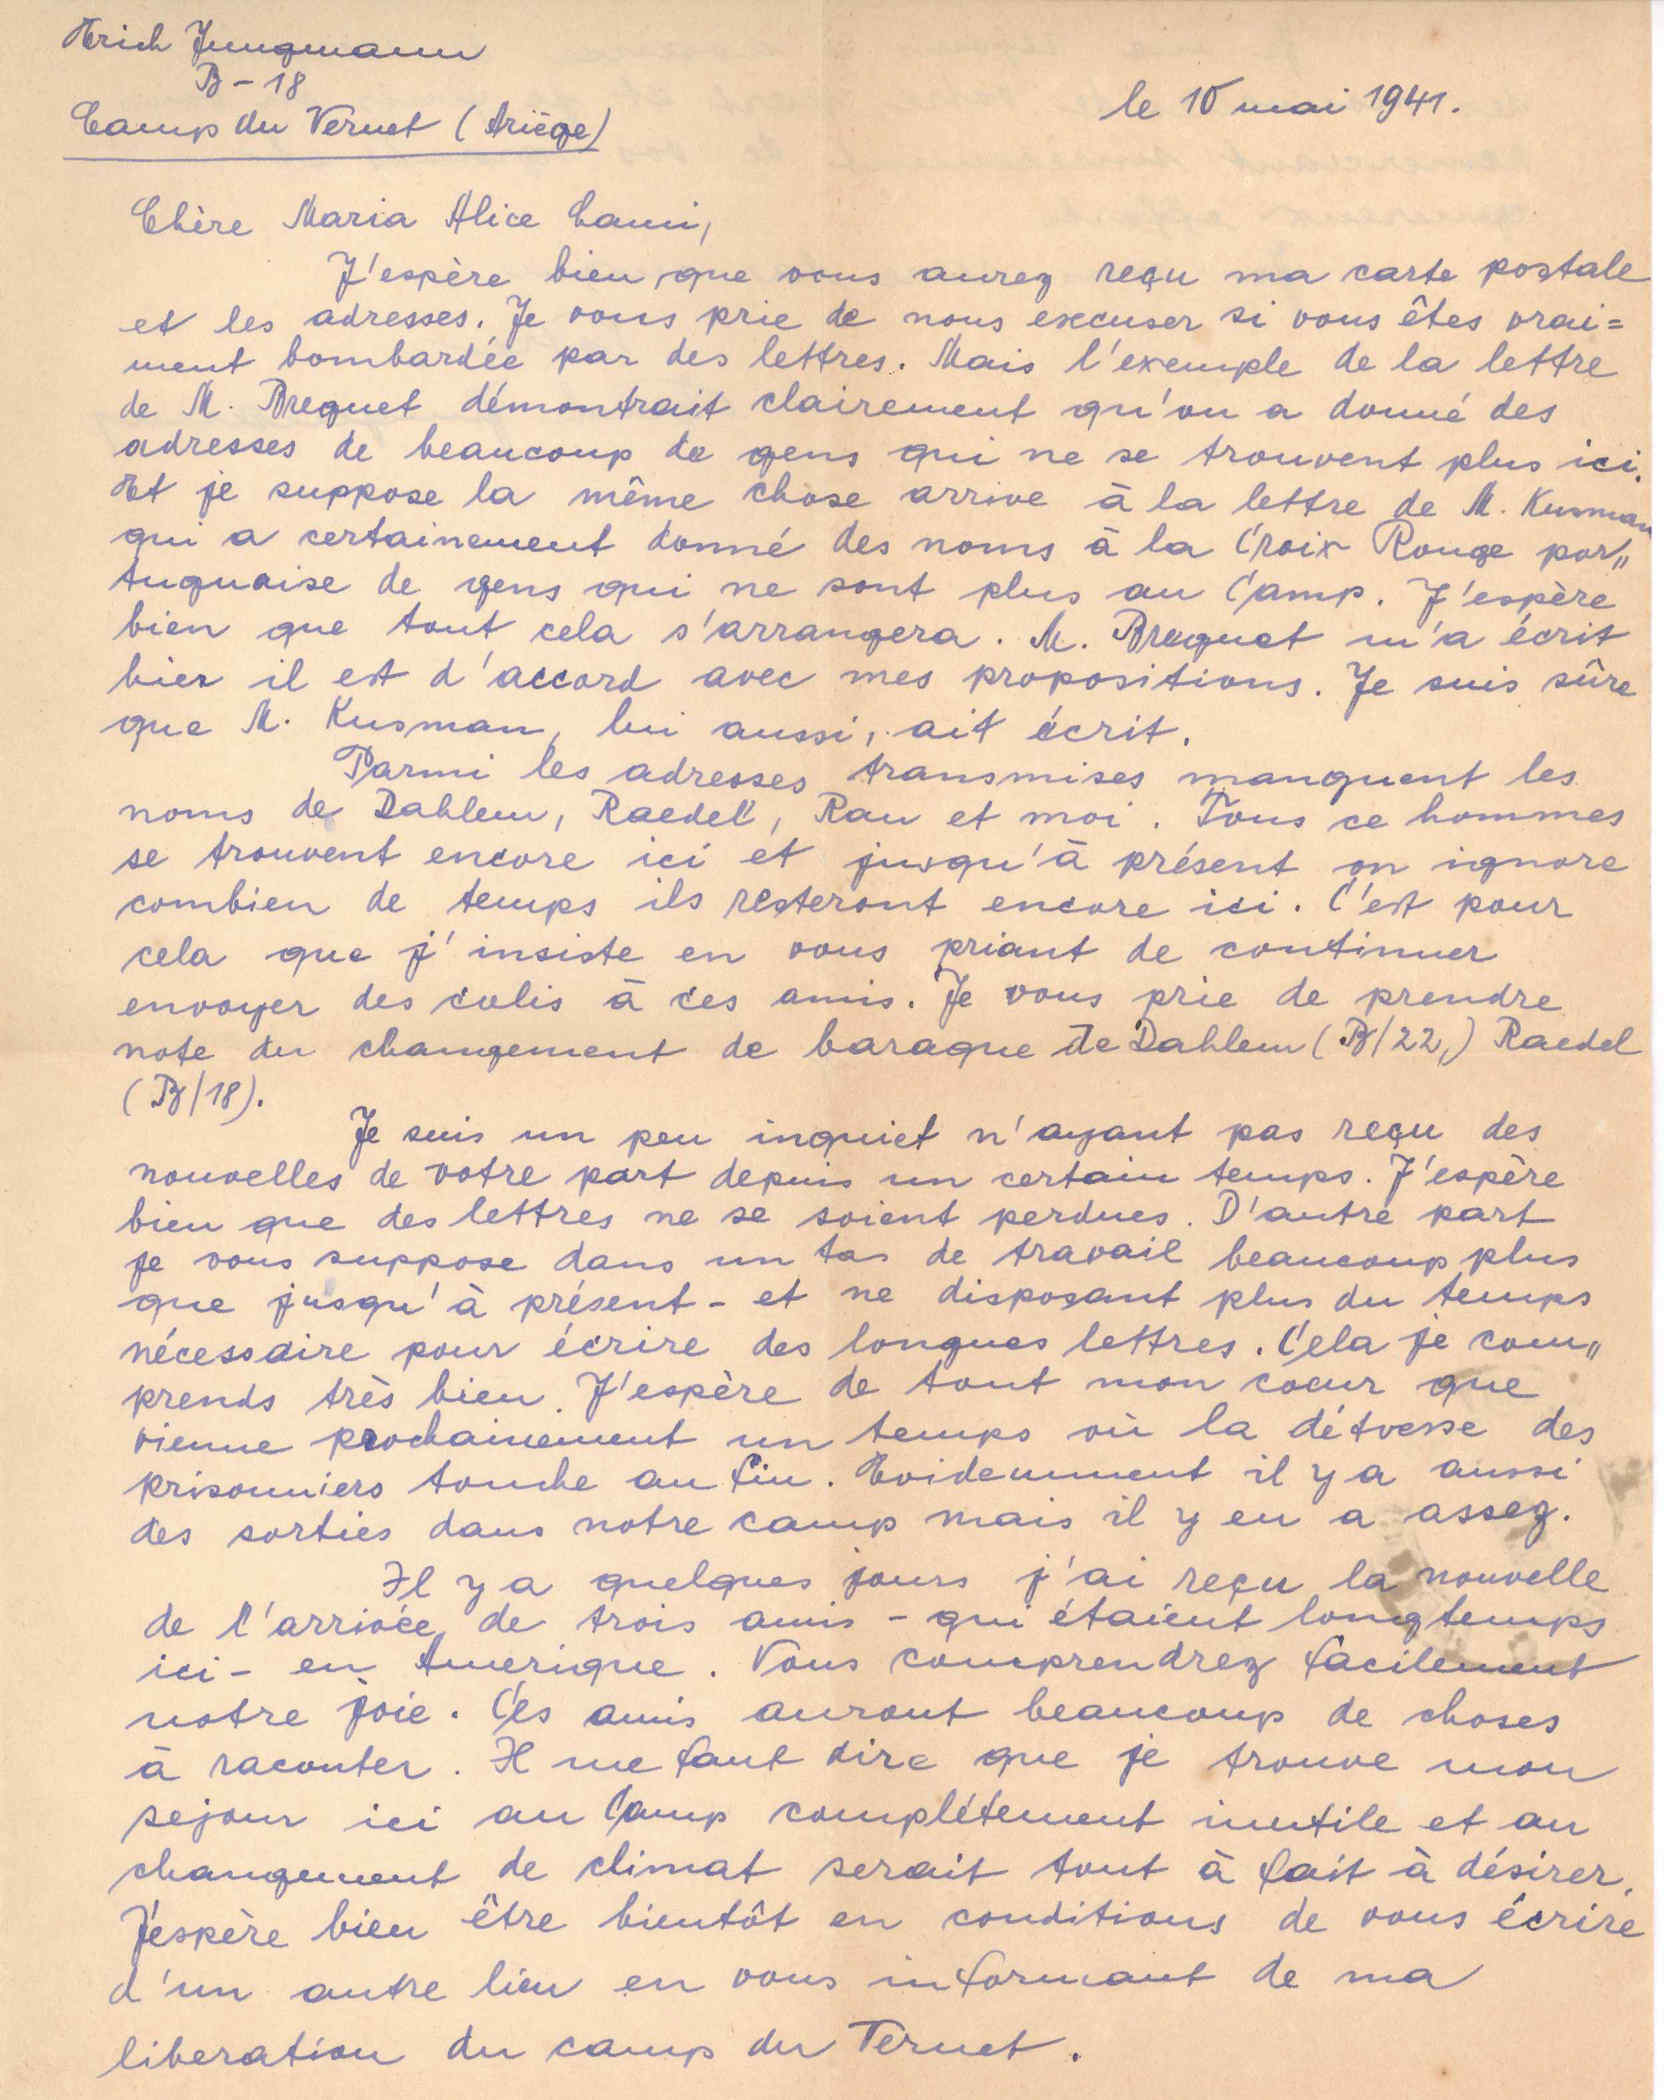 Erich Jungmann
B - 18
Camp du Vernet (Ariège)
le 10 mai 1941.
Chère Maria Alice Lami,
J'espère bien que vous aurez reçu ma carte postale
et les adresses. Je vous prie de nous excuser si vous êtes vrai=
ment bombardée par des lettres. Mais l'exemple de la lettre
de M. Breguet démontrait clairement qu'on a donné des
adresses de beaucoup de gens qui ne se trouvent plus ici.
Et je suppose la même chose arrive à la lettre de M. Kusman
qui a certainement donné des noms à la Croix Rouge por„
tuguaise de gens qui ne sont plus au Camp. J'espère
bien que tout cela s'arrangera. M. Breguet m'a écrit
hier il est d'accord avec mes propositions. Je suis sûre
que M. Kusman, lui aussi, ait écrit.
Parmi les adresses transmises manquent les
noms de Dahlem, Raedel, Rau et moi. Tous ce hommes
se trouvent encore ici et jusqu'à présent on ignore
combien de temps ils resteront encore ici. C'est pour
cela que j'insiste en vous priant de continuer
envoyer des colis à ces amis. Je vous prie de prendre
note du changement de baraque de Dahlem (B/22,) Raedel
(B/18).
Je suis un peu inquiet n'ayant pas reçu des
nouvelles de votre part depuis un certain temps. J'espère
bien que des lettres ne se soient perdues. D'autre part
je vous suppose dans un tas de travail beaucoup plus
que jusqu'à présent - et ne disposant plus du temps
nécessaire pour écrire des longues lettres. Cela je com„
prends très bien. J'espère de tout mon coeur que
vienne prochainement un temps où la détresse des
prisonniers touche au fin. Evidemment il y a aussi
des sorties dans notre camp mais il y en a assez.
Il y a quelques jours j'ai reçu la nouvelle
de l'arrivée de trois amis - qui étaient longtemps
ici - en Amerique. Vous comprendrez facilement
notre joie. Ces amis auront beaucoup de choses
à raconter. Il me faut dire que je trouve mon
sejour ici au Camp complétement inutile et au
changement de climat serait tout à fait à désirer.
J'éspère bien être bientôt en conditions de vous écrire
d'un autre lieu en vous informant de ma
liberation du camp du Vernet.